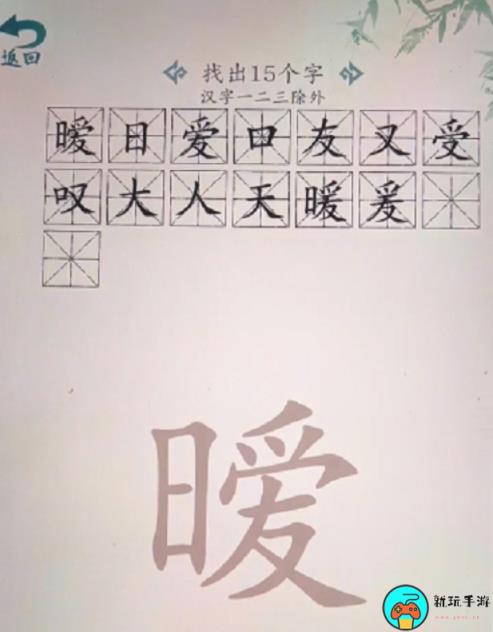 返回
找出15个字
汉字一二三除外
曖日爱田友又受
叹大人天暖爰
曖
就玩手游